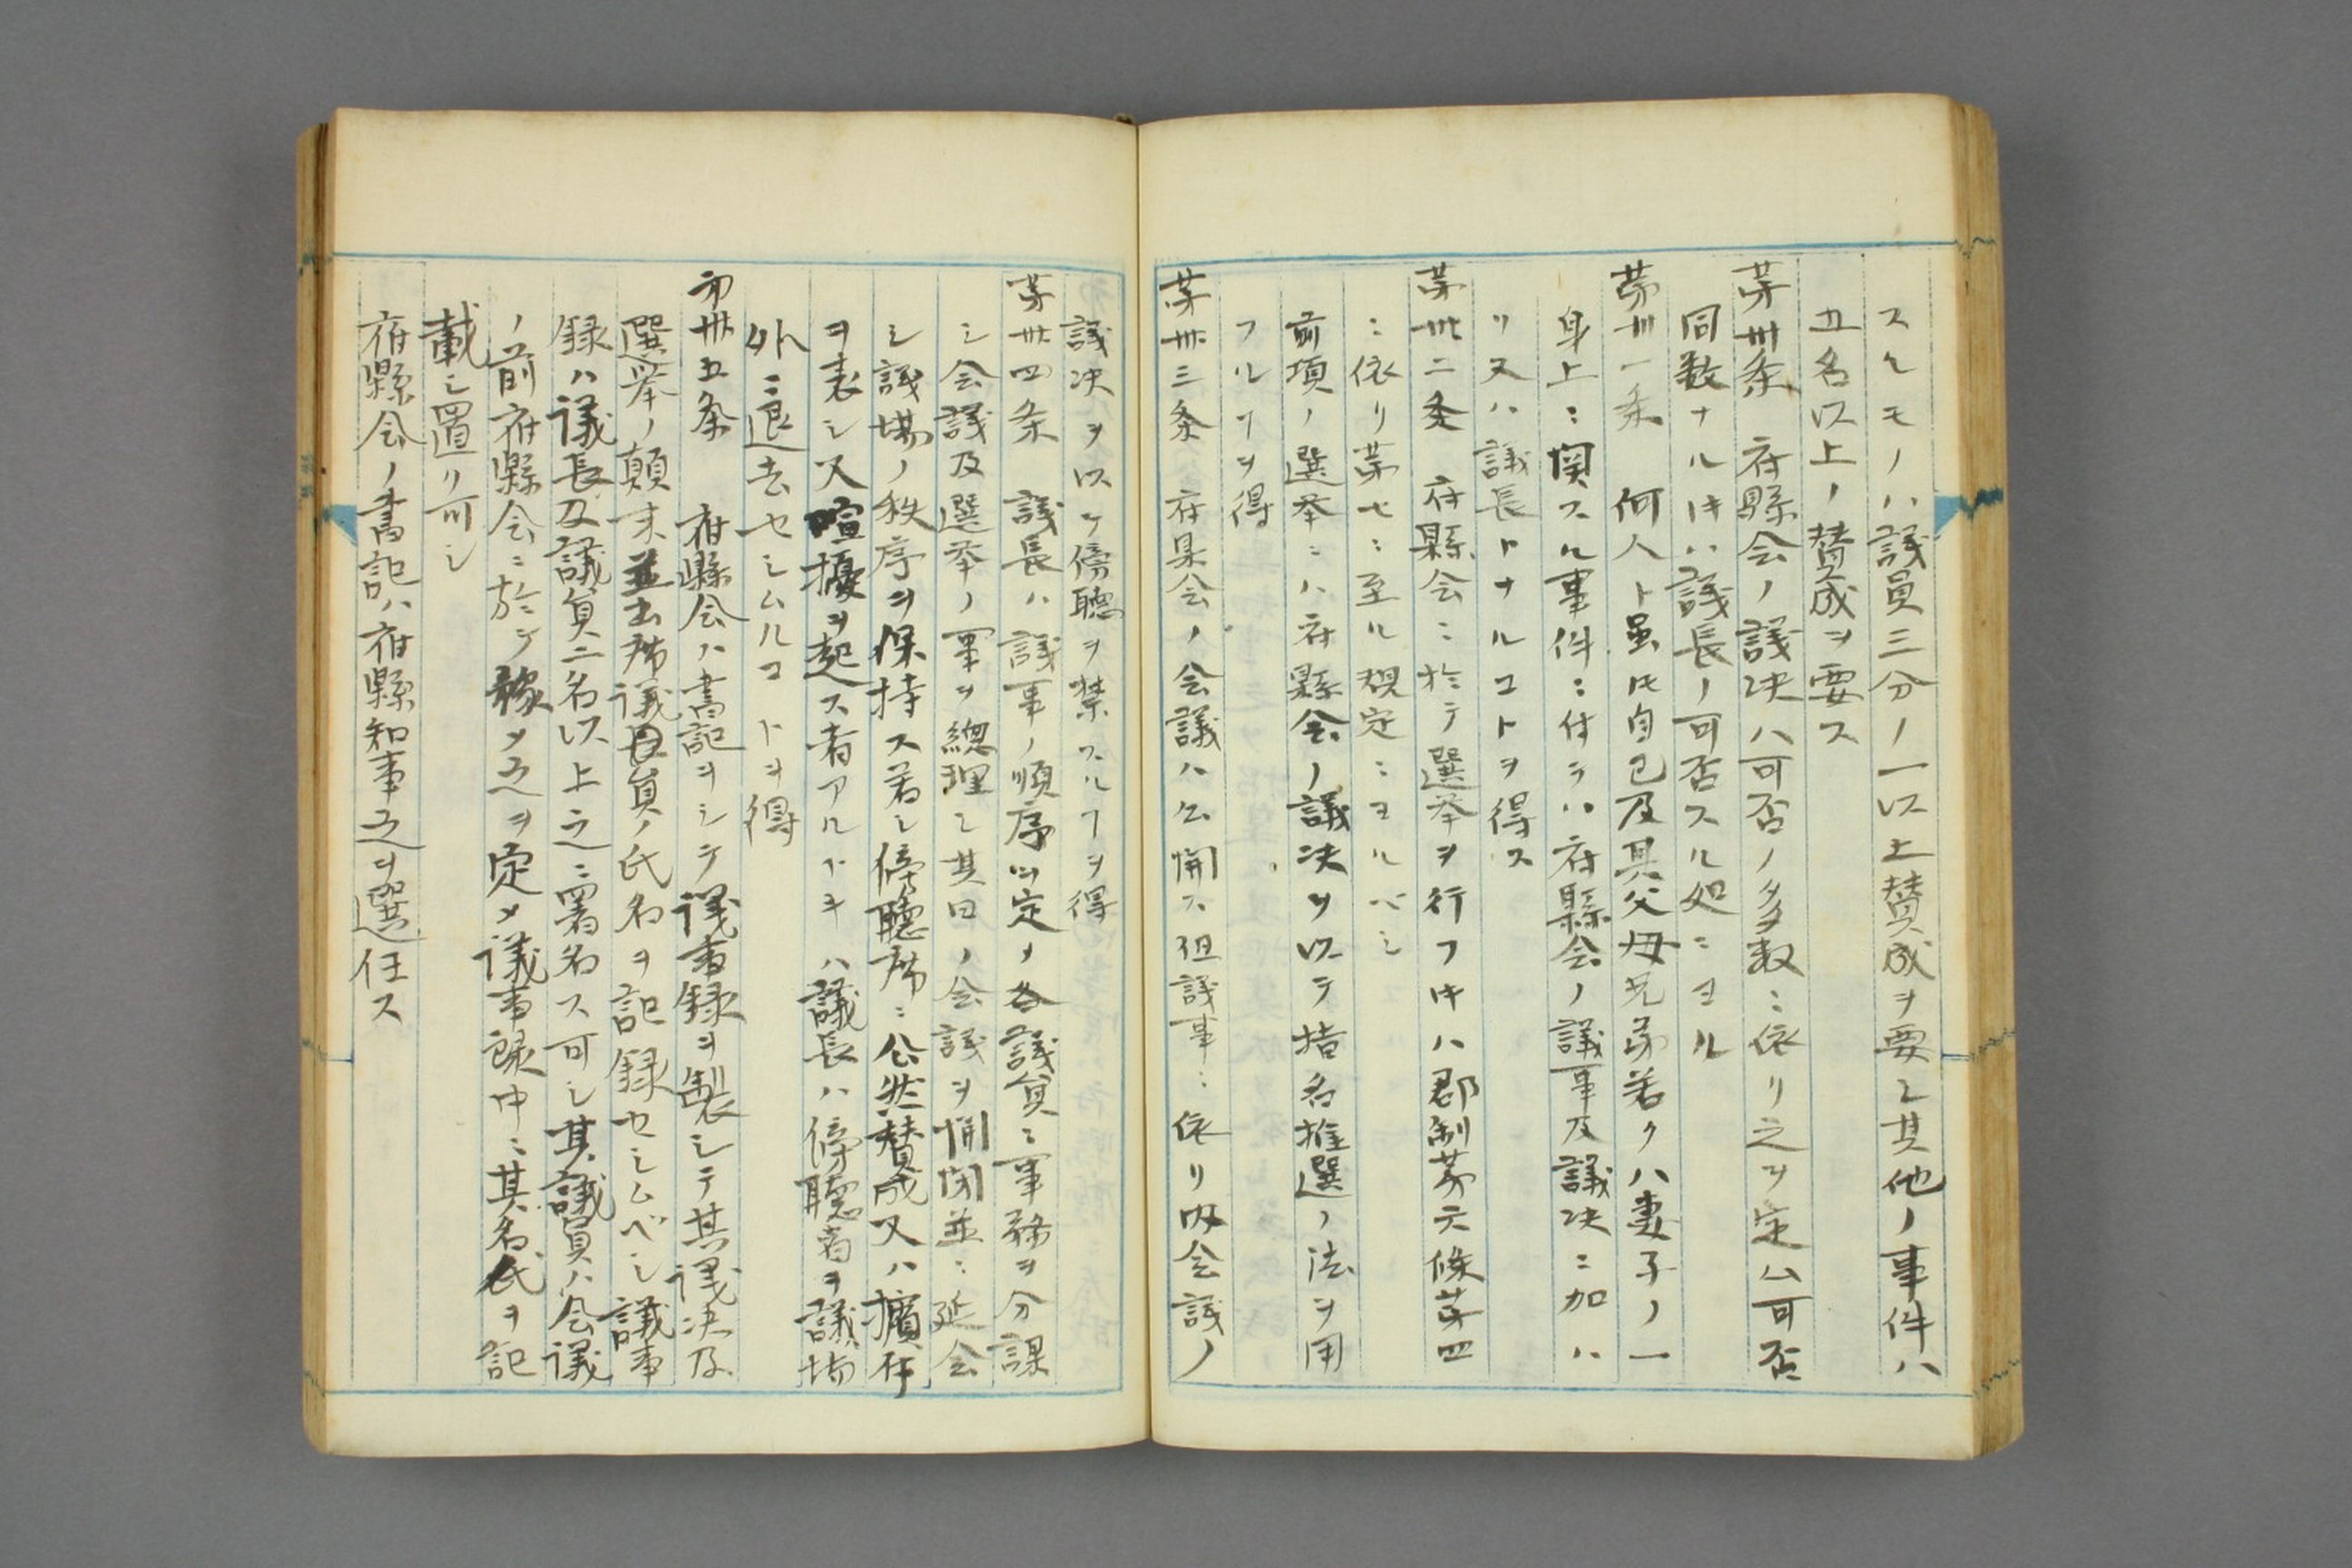 スルモノハ議員三分ノ一以上賛成ヲ要シ其他ノ事件ハ
五名以上ノ賛成ヲ要ス
第卅条 府縣会ノ議决ハ可否ノ多数ニ依リ之ヲ定ム可否
同数ナルキハ議長ノ可否スル処ニヨル
第卅一条 何人ト虽𪜈自己及其父母兄弟若クハ妻子ノ一
身上ニ関スル事件ニ付テハ府縣会ノ議事及議决ニ加ハ
リ又ハ議長トナルコトヲ得ス
第卅二条 府縣会ニ於テ選挙ヲ行フキハ郡制第六條第四
ニ依リ第七ニ至ル規定ニヨルベシ
前項ノ選挙ニハ府縣会ノ議决ヲ以テ指名推選ノ法ヲ用
フルヿヲ得
第卅三条 府県会ノ会議ハ公開ス但議事ニ依リ内会議ノ
議决ヲ以テ傍聴ヲ禁スルヿヲ得
第卅四条 議長ハ議事ノ順序ヲ定メ各議員ニ事務ヲ分課
シ会議及選挙ノ事ヲ總理シ其日ノ会議ヲ開閉並ニ延会
シ議場ノ秩序ヲ保持ス若シ傍聴席ニ公然賛成又ハ擯斥
ヲ表シ又喧擾ヲ起ス者アルトキハ議長ハ傍聴者ヲ議場
外ニ退去セシムルコトヲ得
第卅五条 府縣会ハ書記ヲシテ議事録ヲ製シテ其議决及
選挙ノ顛末並出席議員ノ氏名ヲ記録セシムベシ議事
録ハ議長及議員二名以上之ニ署名ス可シ其議員ハ会議
ノ前府縣会ニ於テ豫メ之ヲ定メ議事録中ニ其名氏ヲ記
載シ置ク可シ
府縣会ノ書記ハ府縣知事之ヲ選任ス